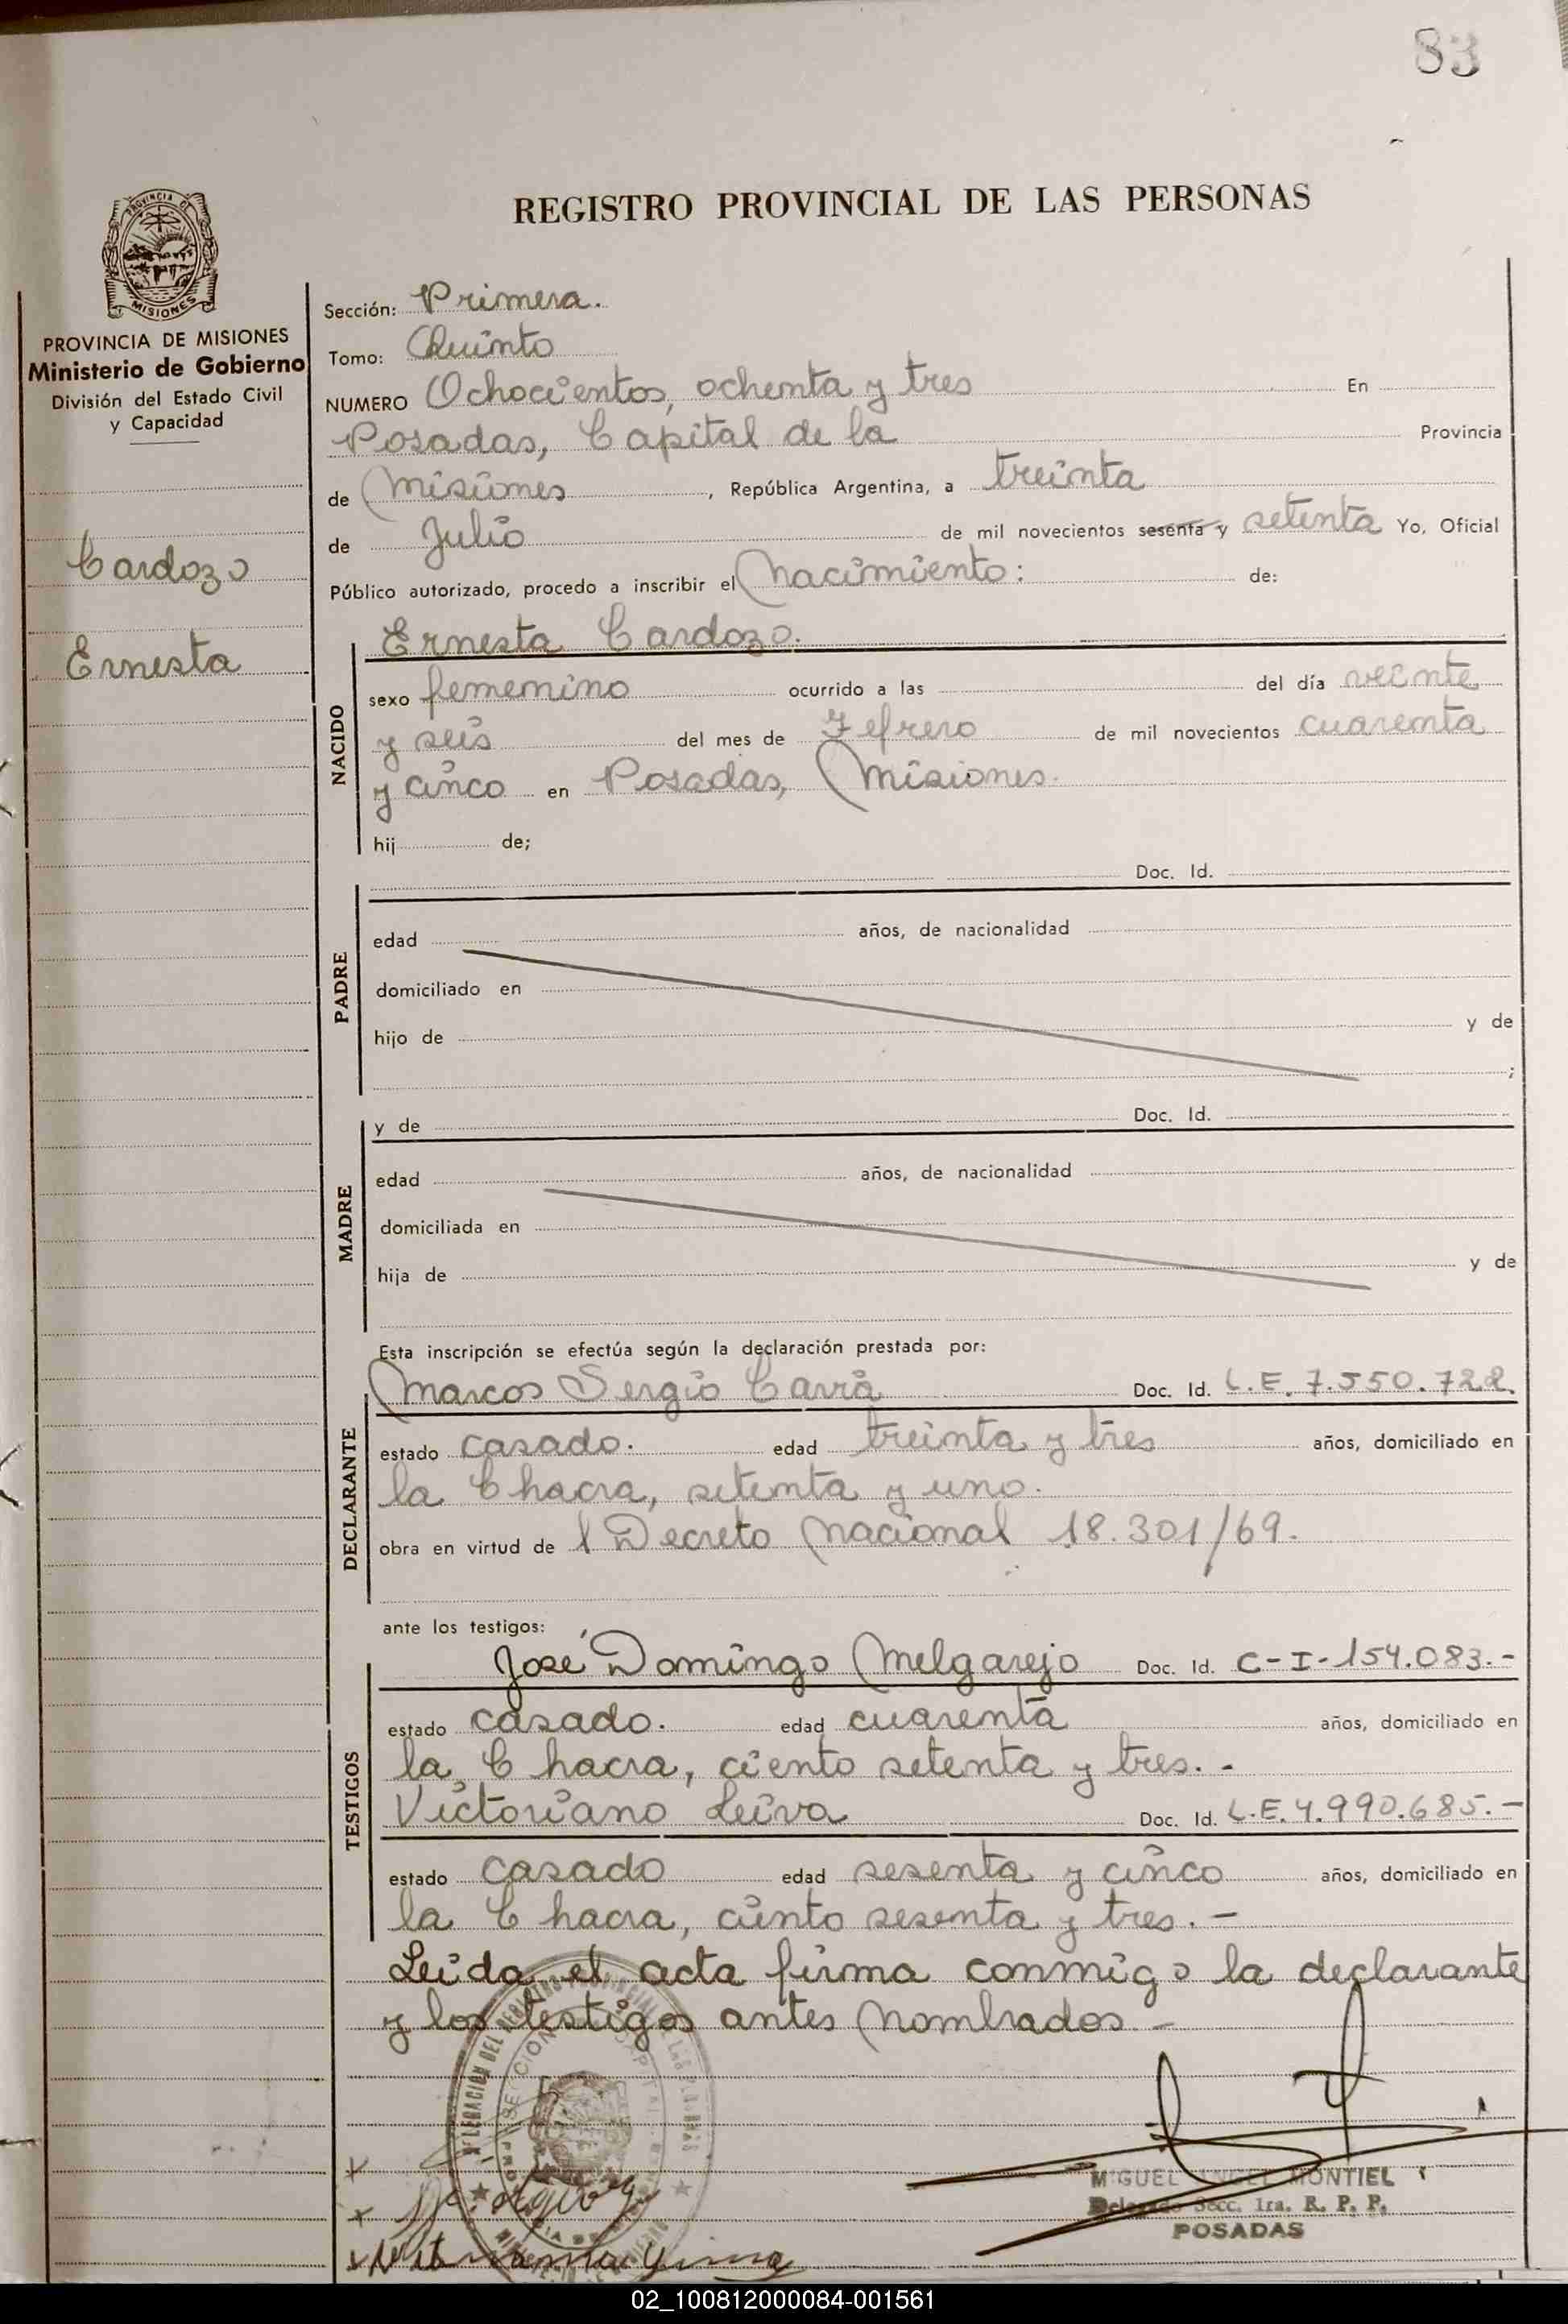 83
REGISTRO PROVINCIAL DE LAS PERSONAS
PROVINCIA DE
MISIONES
PROVINCIA DE MISIONES
Ministerio de Gobierno
División del Estado Civil
y Capacidad
Cardozo
Ernesta
Sección: Primera.
Tomo: Quinto
NUMERO Ochocientos, ochenta y tres En
Posadas, Capital de la Provincia
de Misiones, República Argentina, a treinta
de Julio de mil novecientos sesenta y setenta Yo, Oficial
Público autorizado, procedo a inscribir el Nacimiento: de:
Ernesta Cardozo.
NACIDO
sexo femenino ocurrido a las del día veinte
y seis del mes de Fefrero de mil novecientos cuarenta
y cinco en Posadas, Misiones.
hij de;
PADRE
Doc. Id.
edad años, de nacionalidad
domiciliado en
hijo de y de
;
MADRE
y de Doc. Id.
edad años, de nacionalidad
domiciliada en
hija de y de
Esta inscripción se efectúa según la declaración prestada por:
DECLARANTE
Marcos Sergio Doc. Id. L.E. 7.550.722.
estado casado. edad treinta y tres años, domiciliado en
la Chacra, setenta y uno.
obra en virtud de l Decreto Nacional 18.301/69.
ante los testigos:
TESTIGOS
José Domingo Melgarejo Doc. Id. C-I-154.083.-
estado casado. edad cuarenta años, domiciliado en
la Chacra, ciento setenta y tres. -
Victoriano Leiva Doc. Id. L.E. 4.990.685.-
estado casado edad sesenta y cinco años, domiciliado en
la Chacra, ciento sesenta y tres. -
Leida el acta firma conmigo la declarante
y los testigos antes nombrados. -
MIGUEL ANGEL MONTIEL
Delegado Secc. 1ra. R. P. P.
POSADAS
02_100812000084-001561